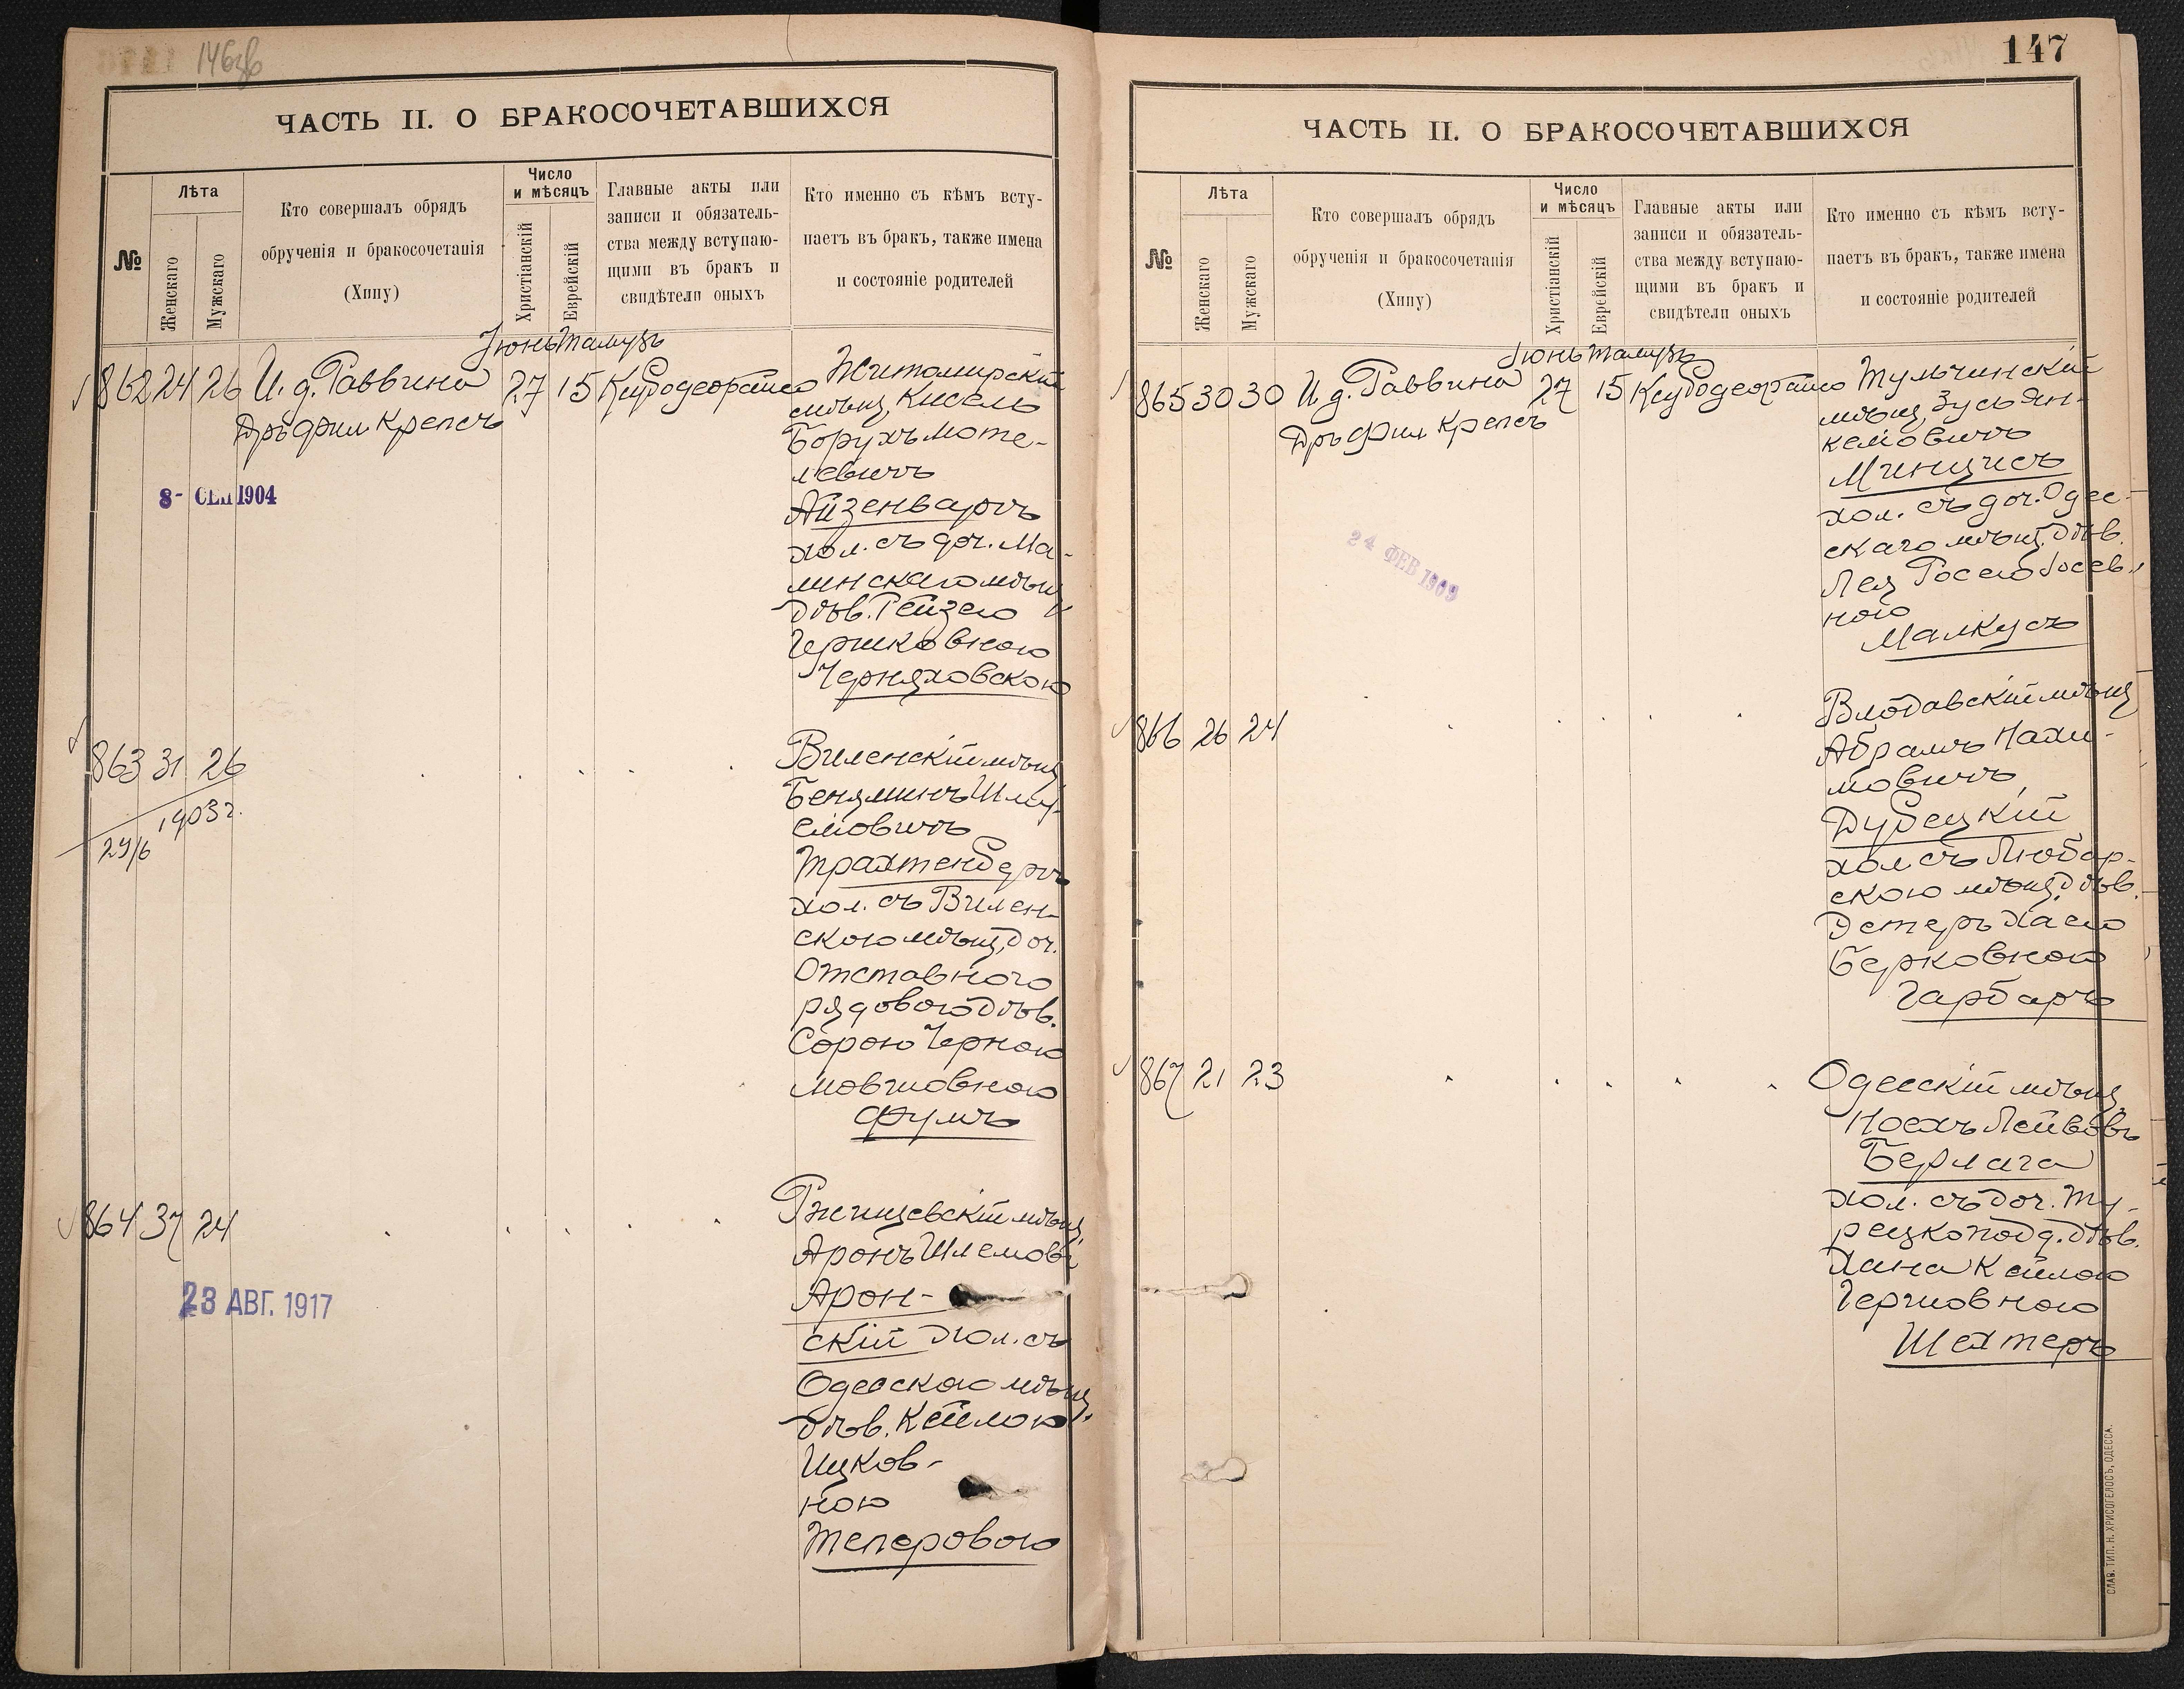 146об
ЧАСТЬ II. О БРАКОСОЧЕТАВШИХСЯ
№
Лѣта
Женскаго
Мужскаго
Кто совершалъ обрядъ
обрученія и бракосочетанія
(Хипу)
Число
и мѣсяцъ
Христіанскій
Еврейскій
Главные акты или
записи и обязатель-
ства между вступаю-
щими въ бракъ и
свидѣтели оныхъ
Кто именно съ кѣмъ всту-
паетъ въ бракъ, также имена
и состояніе родителей
Іюнь Тамузъ
862 24 26 И. д. Раввина 27 15
Дръ Фил Крепсъ
8- СЕН 1904
Житомирскій
мѣщ. Кисель
Борухъ Моте-
левичъ
Айзенваргъ
хол. съ доч. Ма-
линскаго мѣщ.
дѣв. Рейзею
Гершковною
Черняховскою
863 31 26
1903 г.
29/6
Виленскій мѣщ
Беняминъ Шму-
еловичъ
Трахтенбергъ
хол. съ Вилен-
скою мѣщ, доч.
Отставного
рядового дѣв.
Сорою Черною
Мовшовною
Фумъ
864 37 24
23 АВГ. 1917
Ржищевскій мѣщ.
Аронъ Шлемов.
Арон-
скій хол. съ
Одесскою мѣщ.
дѣв. Кейлою
Ицков-
ною
Теперовою
147
ЧАСТЬ II. О БРАКОСОЧЕТАВШИХСЯ
№
Лѣта
Женскаго
Мужскаго
Кто совершалъ обрядъ
обрученія и бракосочетанія
(Хипу)
Число
и мѣсяцъ
Христіанскій
Еврейскій
Главные акты или
записи и обязатель-
ства между вступаю-
щими въ бракъ и
свидѣтели оныхъ
Кто именно съ кѣмъ всту-
паетъ въ бракъ, также имена
и состояніе родителей
Іюнь Тамузъ
865 30 30 И. д. Раввина 27 15
Дръ Фил Крепсъ
24 ФЕВ 1909
Тульчинскій
мѣщ. Зусь Ян-
келовичъ
Минцисъ
хол. съ доч. Одес-
скаго мѣщ. дѣв.
Лея Росею Іосев-
ною
Малкусъ
866 26 24
Влодавскій мѣщ
Абрамъ Нахи-
мовичъ
Дубецкій
хол съ Любар-
скою мѣщ дѣв.
Эстеръ Хаею
Берковною
Гарбаръ
867 21 23
Одесскій мѣщ
Ноехъ Лейбовъ
Берлага
хол. съ доч. Ту-
рецкопод д. дѣв.
Хана Кейлою
Гершовною
Шехтеръ
СЛАВ. ТИП. Н. ХРИСОГЕЛОСЪ, ОДЕССА.